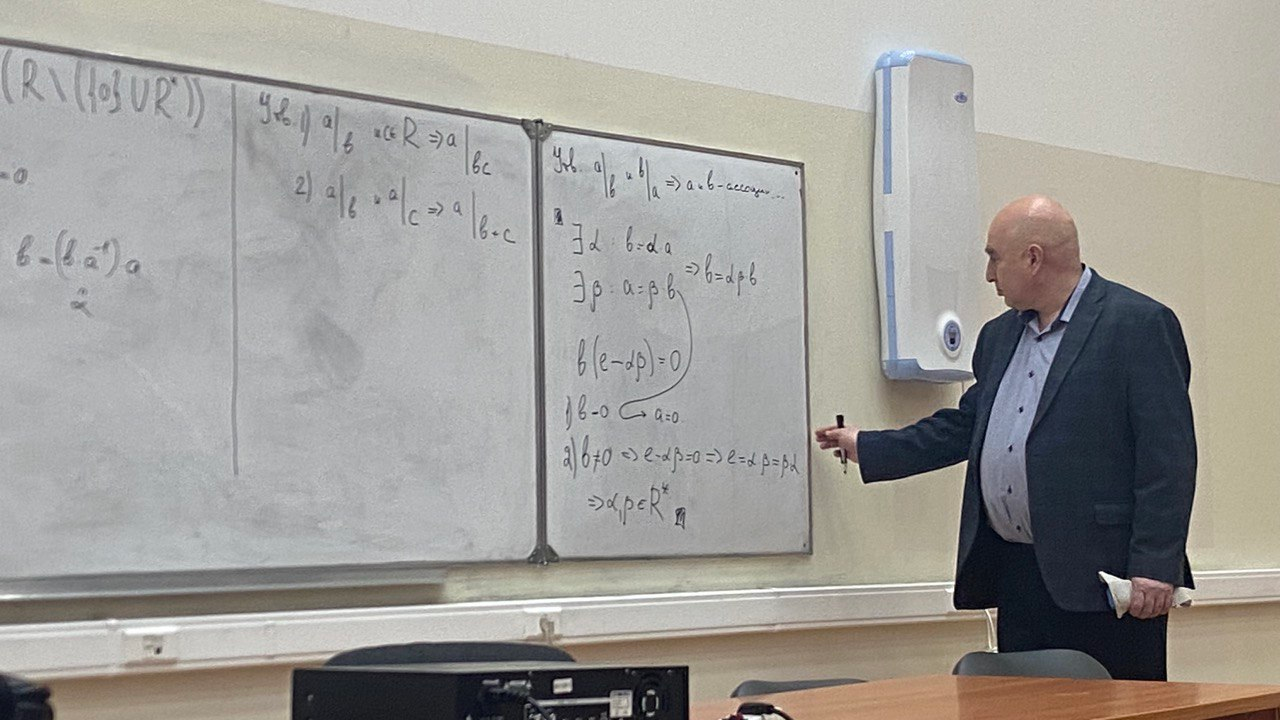 (R \ ({0} ∪ R*))
=0
b = (b·a⁻¹)a
α
Утв. 1) a|b и c∈R ⇒ a|bc
2) a|b и a|c ⇒ a|b+c
Утв. a|b и b|a ⇒ a и b - ассоции...
∃ α : b = α a
∃ β : a = β·b ⇒ b = αβ·b
b(e-αβ)=0
1) b=0 → a=0
2) b≠0 ⇒ e-αβ=0 ⇒ e=αβ=βα
⇒ α,β ∈ R*